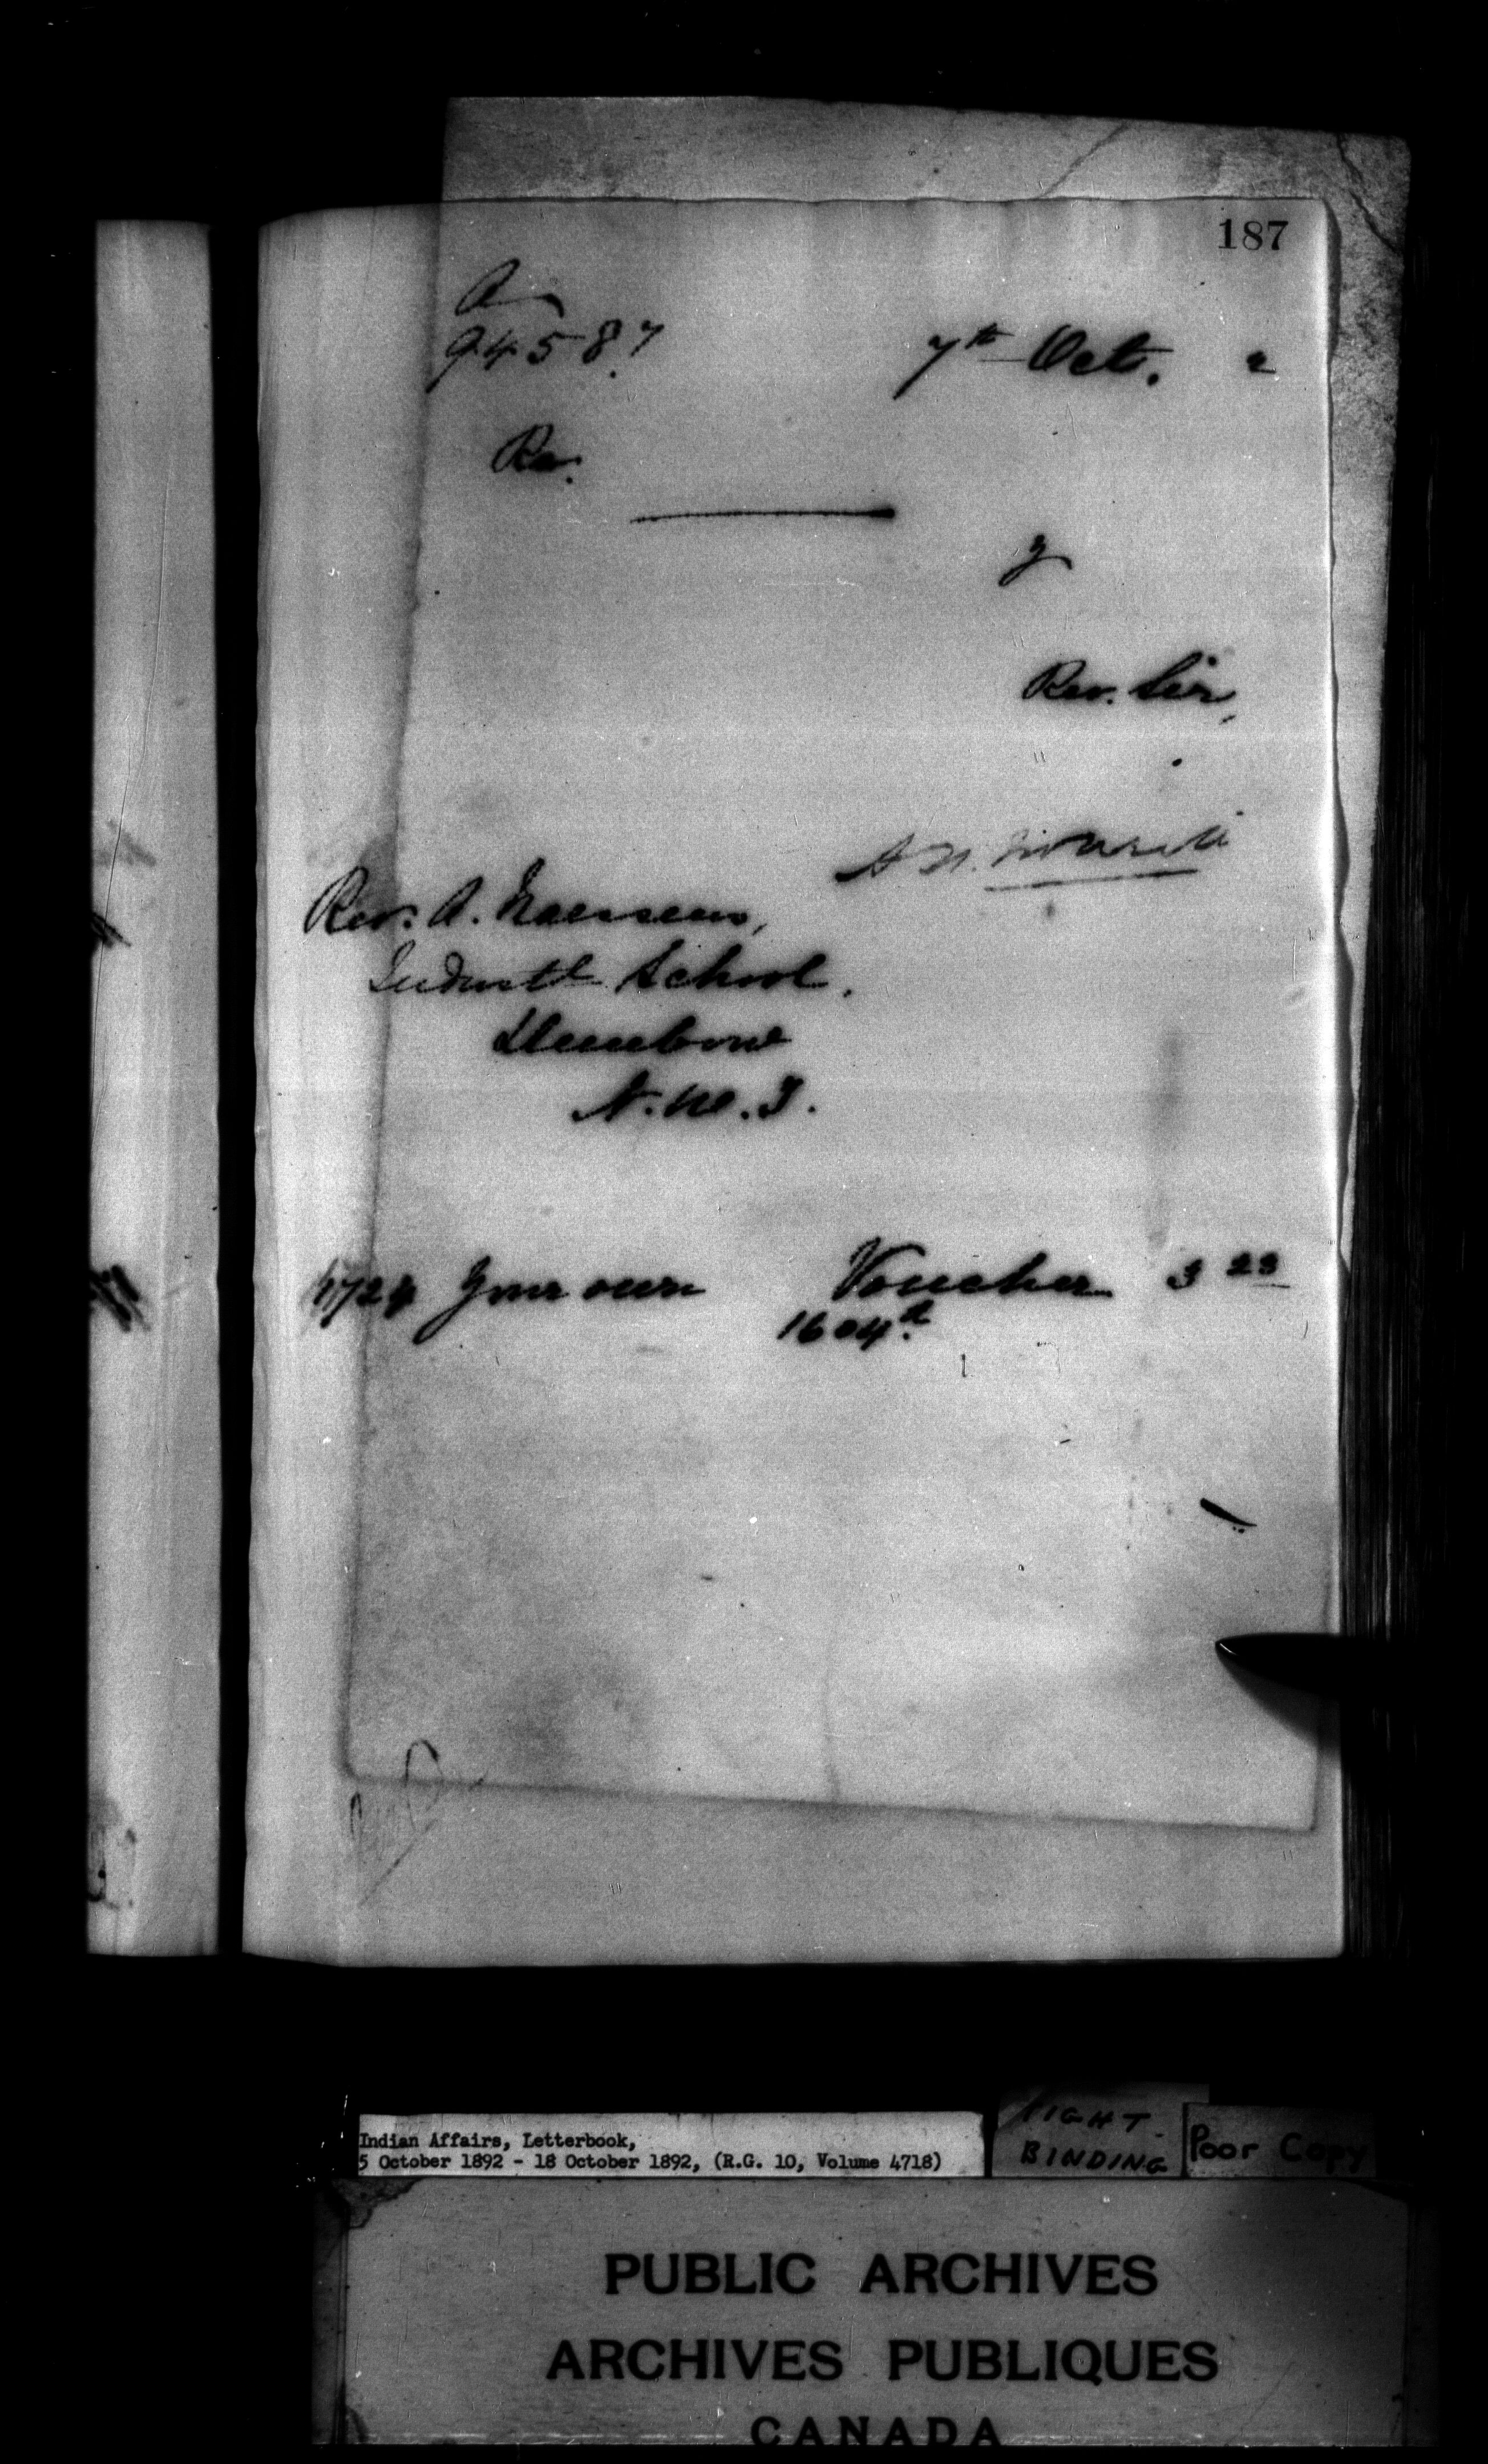 187
A
94587
7th Oct. 2
Rev.
y
Rev. Sir,
Rev. A. Naessens,
Industl School.
Dunbow
N.W.T.
1724 Your own Voucher 3 23
1604 d.
Indian Affairs, Letterbook,
5 October 1892 - 18 October 1892, (R.G. 10, Volume 4718)
TIGHT
BINDING
Poor Copy
PUBLIC ARCHIVES
ARCHIVES PUBLIQUES
CANADA